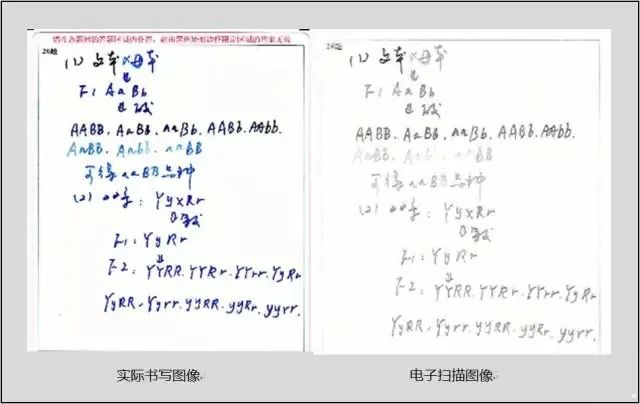 请在各题目的答题区域内作答,超出黑色矩形边框限定区域的答案无效
26题
(1) 父本×母本
↓
F1 AaBb
AABB. AaBb. aaBb. AABb. AAbb.
AaBB. Aabb. aaBB
可得aaBB品种
(2)
YyxRr
F1: YyRr
↓
F2: YYRR. YYRr. YYrr. YyRr
YyRR. Yyrr. yyRR. yyRr. yyrr.
实际书写图像
26题
(1) 父本×母本
↓
F1 AaBb
AABB. AaBb. aaBb. AABb. AAbb.
AaBB. Aabb. aaBB
可得aaBB品种
(2)
YyxRr
F1: YyRr
↓
F2: YYRR. YYRr. YYrr. YyRr
YyRR. Yyrr. yyRR. yyRr. yyrr.
电子扫描图像